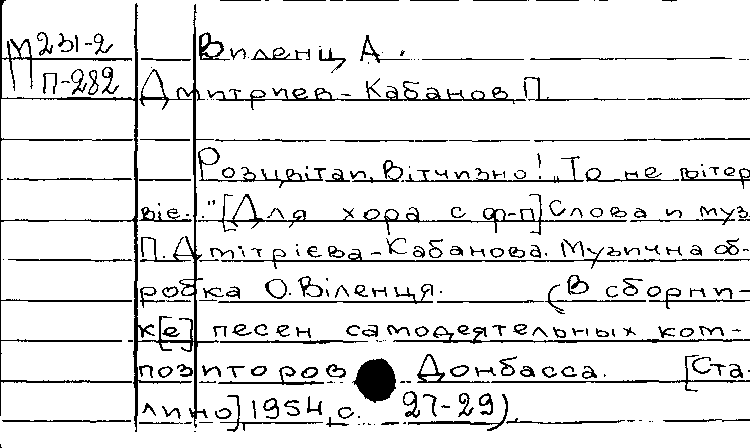 М 231-2
П-282
Виленц, А.
Дмитриев-Кабанов, П.
Розцвітай, Вітчизно! „То не вітер
віє..." [Для хора с ф-п] Слова и муз
П. Дмітрієва-Кабанова. Музична об-
робка О. Віленця. (В сборни-
к[е] песен самодеятельных ком-
позиторов Донбасса. [Ста-
лино], 1954, с. 27-29).